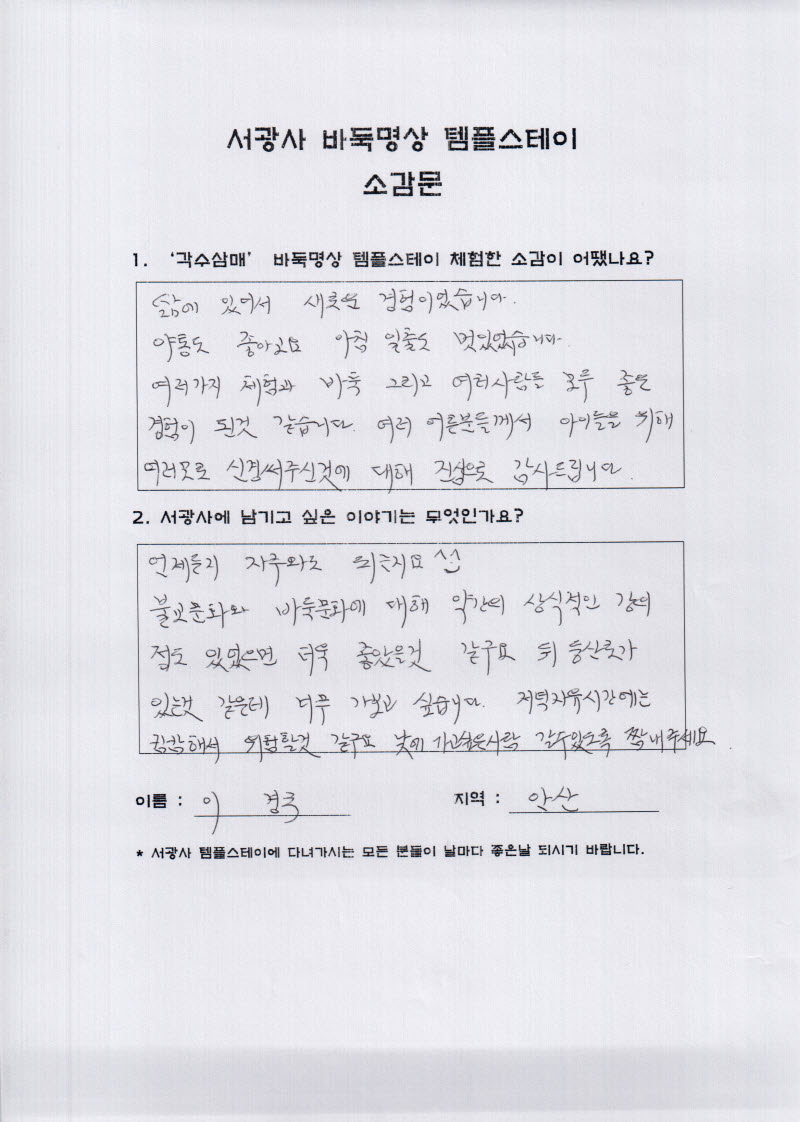 서광사 바둑명상 템플스테이
소감문
1. '각수삼매' 바둑명상 템플스테이 체험한 소감이 어땠나요?
삶에 있어서 새로운 경험이었습니다.
약통도 좋아고요 아침 일출도 멋있었습니다.
여러가지 체험과 바둑 그리고 여러사람들 모두 좋은
경험이 된것 같습니다. 여러 어른분들께서 아이들을 위해
여러모로 신경써주신것에 대해 진심으로 감사드립니다.
2. 서광사에 남기고 싶은 이야기는 무엇인가요?
언제든지 자주와도 되는지요 ^^
불교문화와 바둑문화에 대해 약간의 상식적인 강의
점도 있었으면 더욱 좋았을것 같구요 뒤 등산로가
있는것 같은데 너무 가보고 싶습니다. 저녁자유시간에는
캄캄해서 위험할것 같구요 낮에 가고싶은사람 갈수있도록 짬내주세요
이름 : 이 경
지역 : 안산
* 서광사 템플스테이에 다녀가시는 모든 분들이 날마다 좋은날 되시기 바랍니다.